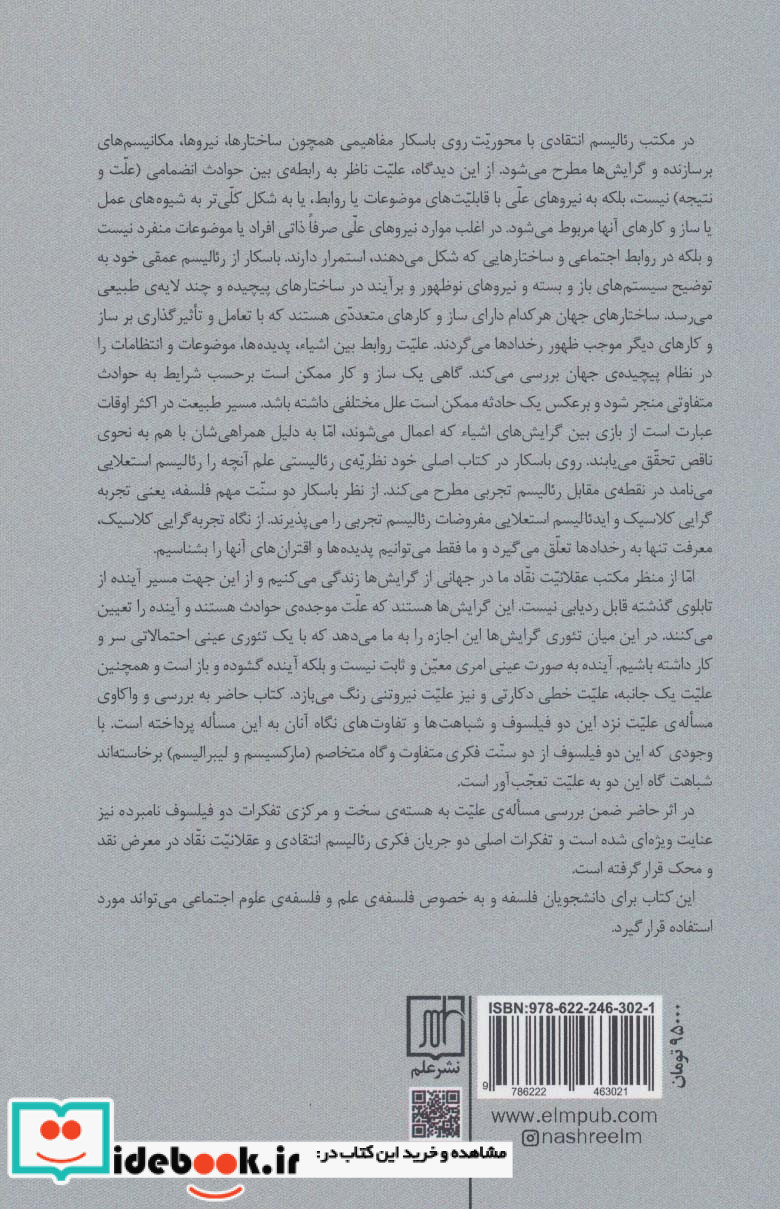 در مکتب رئالیسم انتقادی با محوریّت روی باسکار مفاهیمی همچون ساختارها، نیروها، مکانیسم‌های
برسازنده و گرایش‌ها مطرح می‌شود. از این دیدگاه، علیّت ناظر به رابطه‌ی بین حوادث انضمامی (علّت و
نتیجه) نیست، بلکه به نیروهای علّی با قابلیّت‌های موضوعات یا روابط، یا به شکل کلّی‌تر به شیوه‌های عمل
یا ساز و کارهای آنها مربوط می‌شود. در اغلب موارد نیروهای علّی صرفاً ذاتی افراد یا موضوعات منفرد نیست
و بلکه در روابط اجتماعی و ساختارهایی که شکل می‌دهند، استمرار دارند. باسکار از رئالیسم عمقی خود به
توضیح سیستم‌های باز و بسته و نیروهای نوظهور و برآیند در ساختارهای پیچیده و چند لایه‌ی طبیعی
می‌رسد. ساختارهای جهان هرکدام دارای ساز و کارهای متعددّی هستند که با تعامل و تأثیرگذاری بر ساز
و کارهای دیگر موجب ظهور رخدادها می‌گردند. علیّت روابط بین اشیاء، پدیده‌ها، موضوعات و انتظامات را
در نظام پیچیده‌ی جهان بررسی می‌کند. گاهی یک ساز و کار ممکن است برحسب شرایط به حوادث
متفاوتی منجر شود و برعکس یک حادثه ممکن است علل مختلفی داشته باشد. مسیر طبیعت در اکثر اوقات
عبارت است از بازی بین گرایش‌های اشیاء که اعمال می‌شوند، امّا به دلیل همراهی‌شان با هم به نحوی
ناقص تحقّق می‌یابند. روی باسکار در کتاب اصلی خود نظریّه‌ی رئالیستی علم آنچه را رئالیسم استعلایی
می‌نامد در نقطه‌ی مقابل رئالیسم تجربی مطرح می‌کند. از نظر باسکار دو سنّت مهم فلسفه، یعنی تجربه
گرایی کلاسیک و ایدئالیسم استعلایی مفروضات رئالیسم تجربی را می‌پذیرند. از نگاه تجربه‌گرایی کلاسیک،
معرفت تنها به رخدادها تعلّق می‌گیرد و ما فقط می‌توانیم پدیده‌ها و اقتران‌های آنها را بشناسیم.
امّا از منظر مکتب عقلانیّت نقّاد ما در جهانی از گرایش‌ها زندگی می‌کنیم و از این جهت مسیر آینده از
تابلوی گذشته قابل ردیابی نیست. این گرایش‌ها هستند که علّت موجده‌ی حوادث هستند و آینده را تعیین
می‌کنند. در این میان تئوری گرایش‌ها این اجازه را به ما می‌دهد که با یک تئوری عینی احتمالاتی سر و
کار داشته باشیم. آینده به صورت عینی امری معیّن و ثابت نیست و بلکه آینده گشوده و باز است و همچنین
علیّت یک جانبه، علیّت خطی دکارتی و نیز علیّت نیروتنی رنگ می‌بازد. کتاب حاضر به بررسی و واکاوی
مسأله‌ی علیّت نزد این دو فیلسوف و شباهت‌ها و تفاوت‌های نگاه آنان به این مسأله پرداخته است. با
وجودی که این دو فیلسوف از دو سنّت فکری متفاوت و گاه متخاصم (مارکسیسم و لیبرالیسم) برخاسته‌اند
شباهت گاه این دو به علیّت تعجّب‌آور است.
در اثر حاضر ضمن بررسی مسأله‌ی علیّت به هسته‌ی سخت و مرکزی تفکرات دو فیلسوف نامبرده نیز
عنایت ویژه‌ای شده است و تفکرات اصلی دو جریان فکری رئالیسم انتقادی و عقلانیّت نقّاد در معرض نقد
و محک قرار گرفته است.
این کتاب برای دانشجویان فلسفه و به خصوص فلسفه‌ی علم و فلسفه‌ی علوم اجتماعی می‌تواند مورد
استفاده قرار گیرد.
ISBN:978-622-246-302-1
9 786222 463021
۹۵۰۰۰ تومان
نشر علم
www.elmpub.com
nashreelm
مشاهده و خرید این کتاب در:
idebook.ir